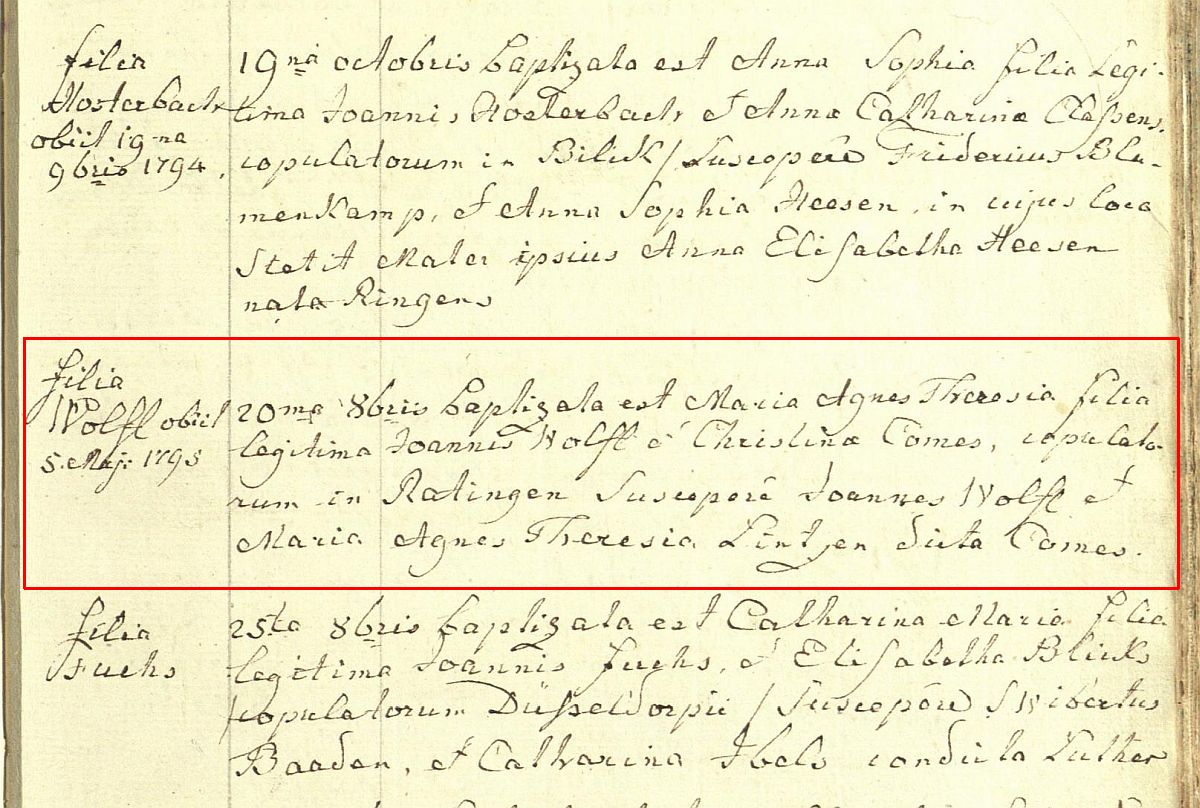 filia
Klosterbach
obiit 19-na
9bris 1794.
19na octobris baptizata est Anna Sophia filia legi-
tima Joannis Klosterbach et Annæ Catharinæ Claßens,
copulatorum in Bilck / Susceperē Fridericus Blu-
menkamp, et Anna Sophia Heesen, in cujus loco
stetit Mater ipsius Anna Elisabetha Heesen
nata Ringens
filia
Wolff obiit
5. Maji 1795
20ma 8bris baptizata est Maria Agnes Theresia filia
legitima Joannis Wolff et Christinæ Comes, copulato-
rum in Ratingen Susceperē Joannes Wolff et
Maria Agnes Theresia Lintzen dicta Comes.
filia
Fuchs
25ta 8bris baptizata est Catharina Maria filia
legitima Joannis Fuchs, et Elisabetha Blicks
copulatorum Düsseldorpii / Susceperē Swibertus
Baaden, et Catharina Ibels condicta Luther